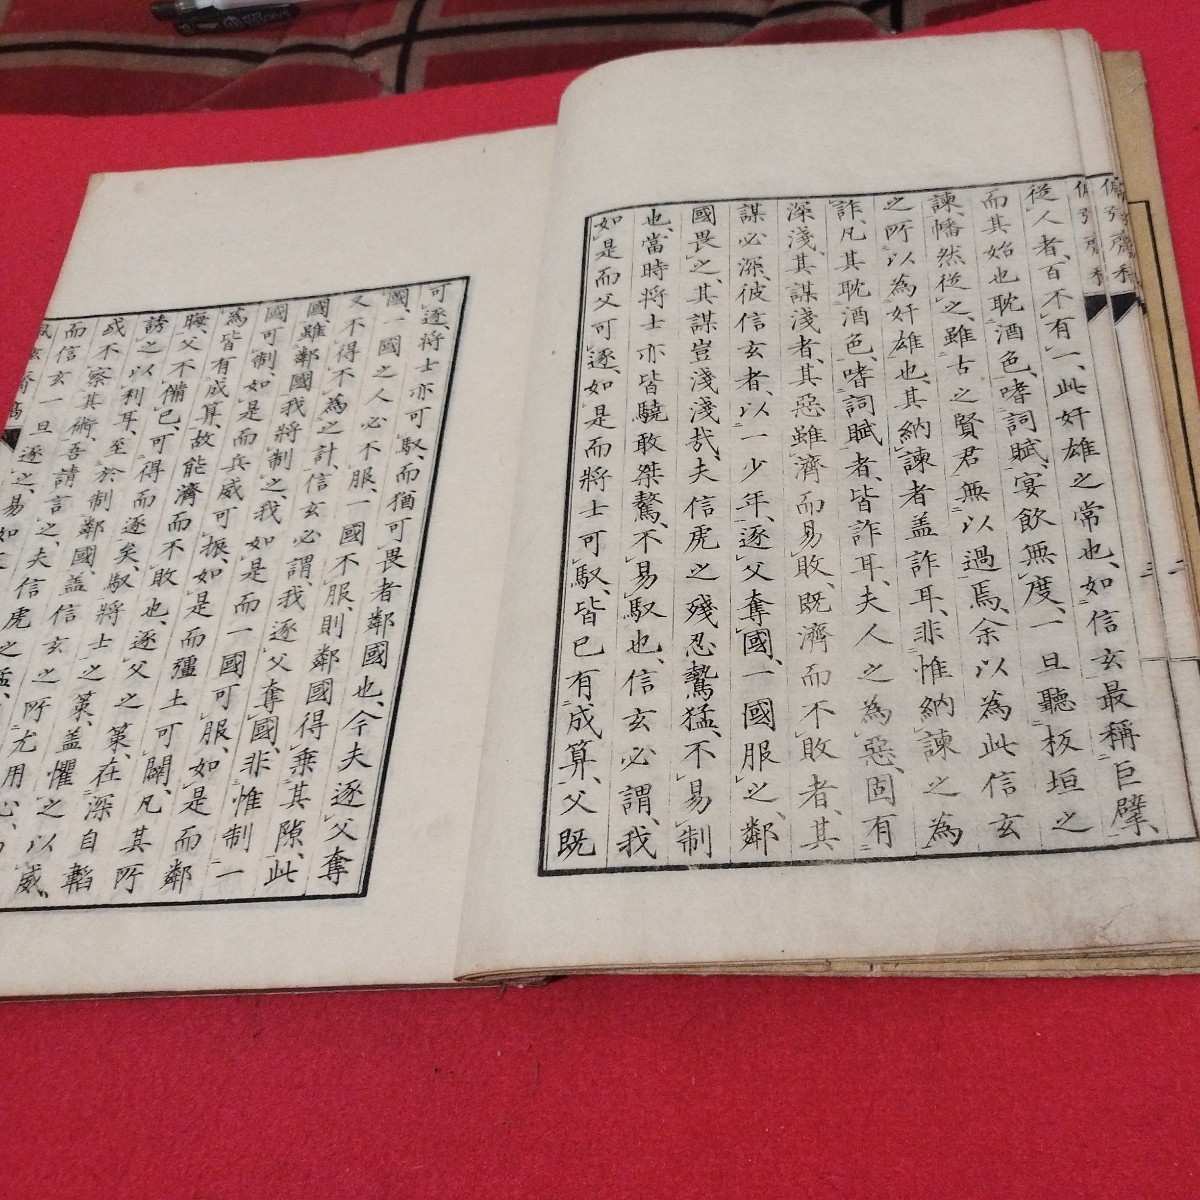 從人者、百不有一、此奸雄之常也、如信玄最稱巨擘、
而其始也耽酒色、嗜詞賦、宴飲無度、一旦聽板垣之
諫、幡然從之、雖古之賢君無以過焉、余以為此信玄
之所以為奸雄也、其納諫者蓋詐耳、非惟納諫之為
詐、凡其耽酒色、嗜詞賦者、皆詐耳、夫人之為惡、固有
深淺、其謀淺者、其惡雖濟而易敗、既濟而不敗者、其
謀必深、彼信玄者、以一少年、逐父奪國、一國服之、鄰
國畏之、其謀豈淺淺哉、夫信虎之殘忍鷙猛、不易制
也、當時将士亦皆驍敢桀驁、不易馭也、信玄必謂、我
如是而父可逐、如是而將士可馭、皆已有成算、父既
可逐、將士亦可馭、而猶可畏者鄰國也、今夫逐父奪
國、一國之人必不服、一國不服、則鄰國得乗其隙、此
又不得不為之計、信玄必謂、我逐父奪國、非惟制一
國雖鄰國我將制之、我如是而一國可服、如是而鄰
國可制、如是而兵威可振、如是而彊土可闢、凡其所
為皆有成算、故能濟而不敗也、逐父之策、在深自韜
晦、父不備已、可得而逐矣、馭將士之策、蓋懼之以威、
誘之以利耳、至於制鄰國、蓋信玄之所尤用心、
或不察其術、吾請言之、夫信虎之猛、
而信玄一旦逐之、易如